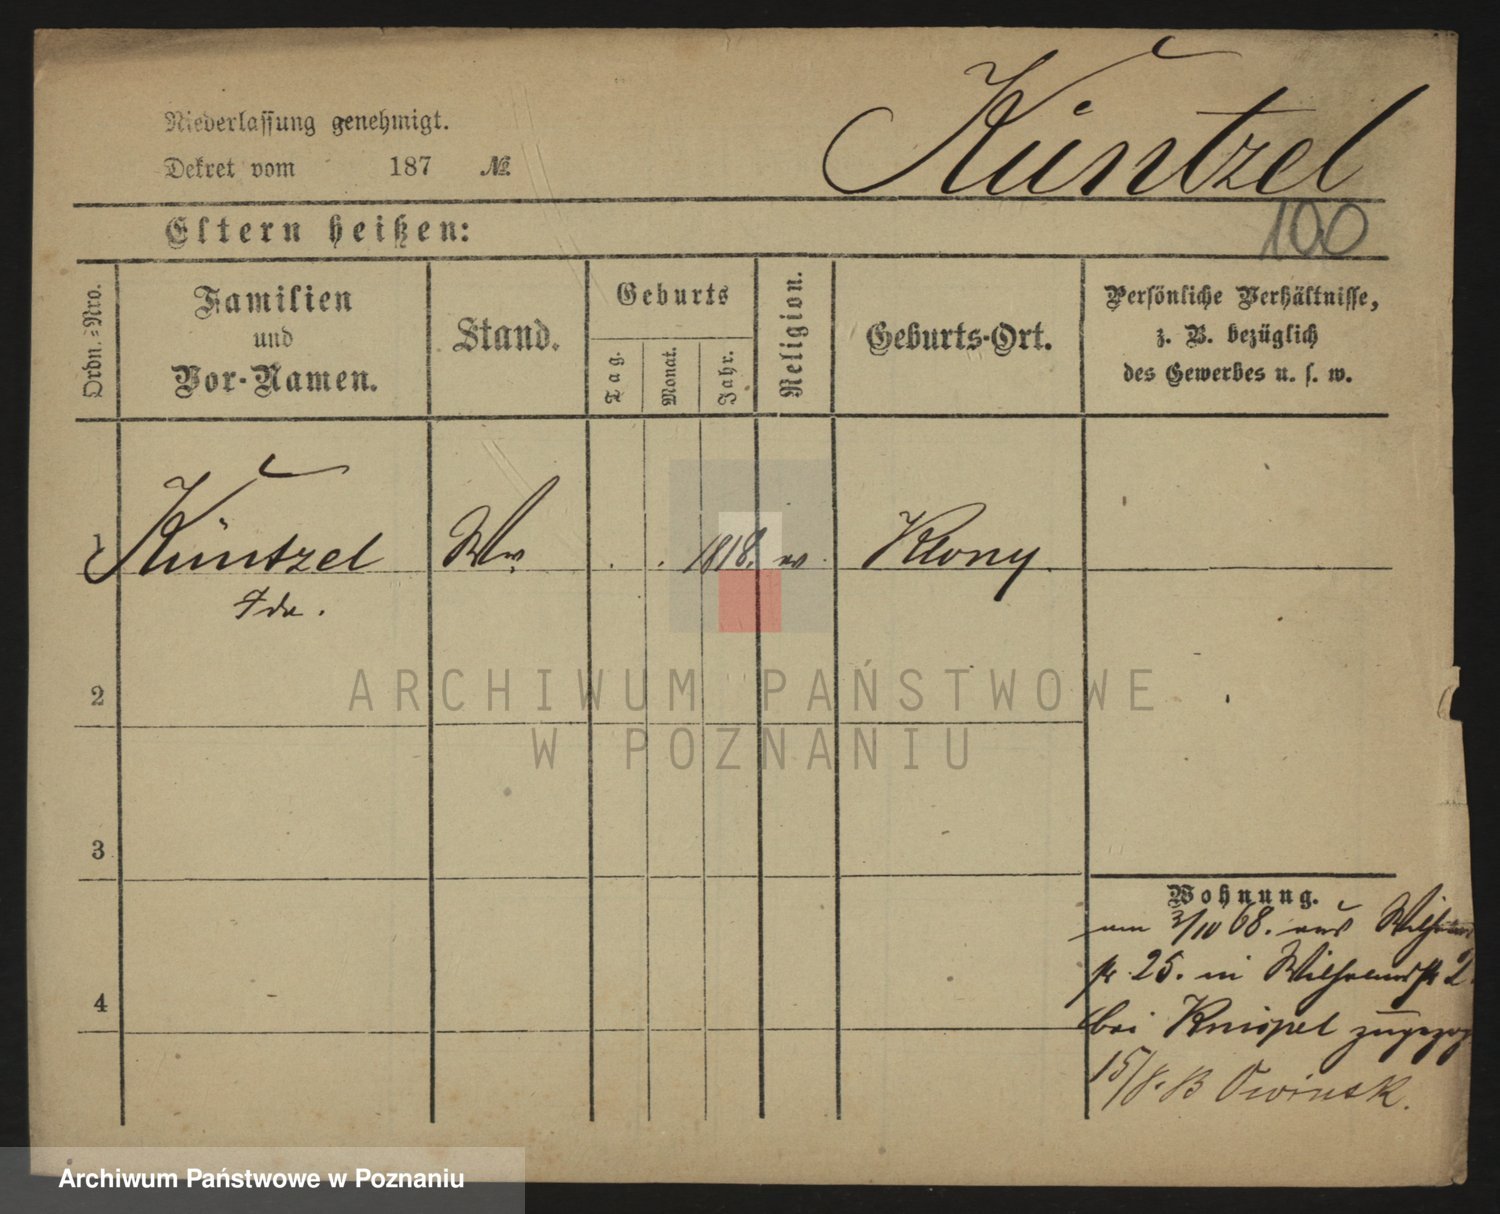 Küntzel
Niederlassung genehmigt.
Dekret vom 187 №
100
Eltern heißen:
Ordn.-Nro.
Familien
und
Vor-Namen.
Stand.
Geburts
Tag.
Monat.
Jahr.
Religion.
Geburts-Ort.
Persönliche Verhältnisse,
z. B. bezüglich
des Gewerbes u. s. w.
1 Küntzel Ww . . 1818. ev. Klony.
Ida.
2
ARCHIWUM PAŃSTWOWE
W POZNANIU
3
4
Wohnung.
am 3/10 68. aus
str 25. in Wilhelmstr 2
bei Knispel zugezog
15/8. B Owinsk.
Archiwum Państwowe w Poznaniu